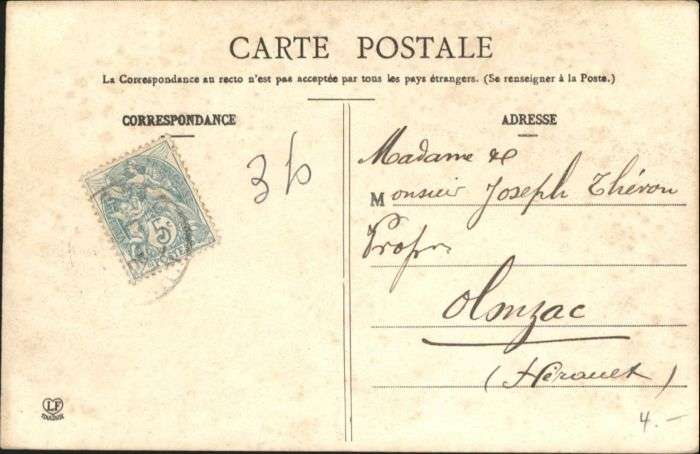 CARTE POSTALE
La Correspondance au recto n'est pas acceptée par tous les pays étrangers. (Se renseigner à la Poste.)
CORRESPONDANCE
ADRESSE
5c
Madame &
Monsieur Joseph Théron
Propre
Olonzac
(Hérault)
LF
4.-